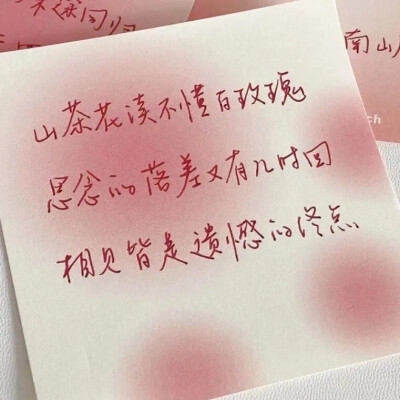 回归
南山
ch
山茶花读不懂白玫瑰
思念的落差又有几时回
相见皆是遗憾的终点